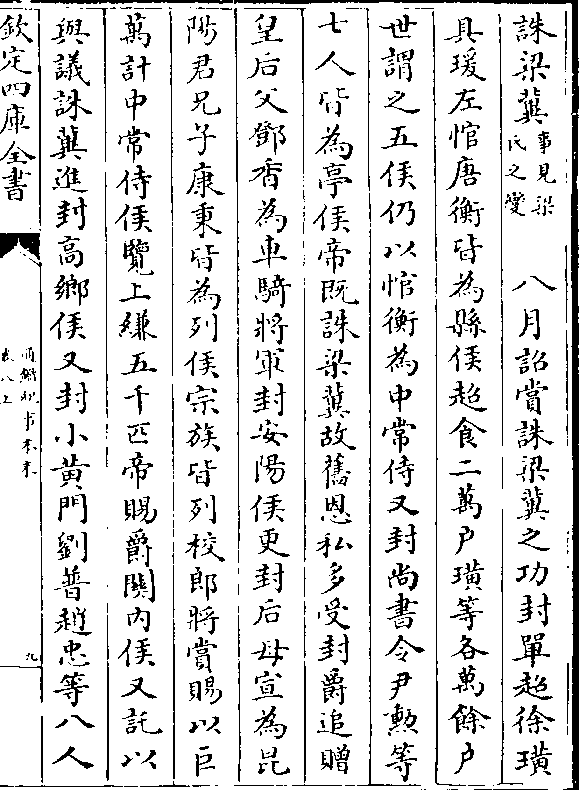 誅梁冀事見梁氏之變 八月詔賞誅梁冀之功封單超徐璜
具瑗左悺唐衡皆為縣侯超食二萬户璜等各萬餘户
世謂之五侯仍以悺衡為中常侍又封尚書令尹勲等
七人皆為亭侯帝既誅梁冀故舊恩私多受封爵追贈
皇后父鄧香為車騎將軍封安陽侯更封后母宣為昆
陽君兄子康秉皆為列侯宗族皆列校郎將賞賜以巨
萬計中常侍侯覽上縑五千匹帝賜爵關内侯又託以
與議誅冀進封髙鄉侯又封小黄門劉普趙忠等八人
欽定四庫全書
通鑑紀事本末
九